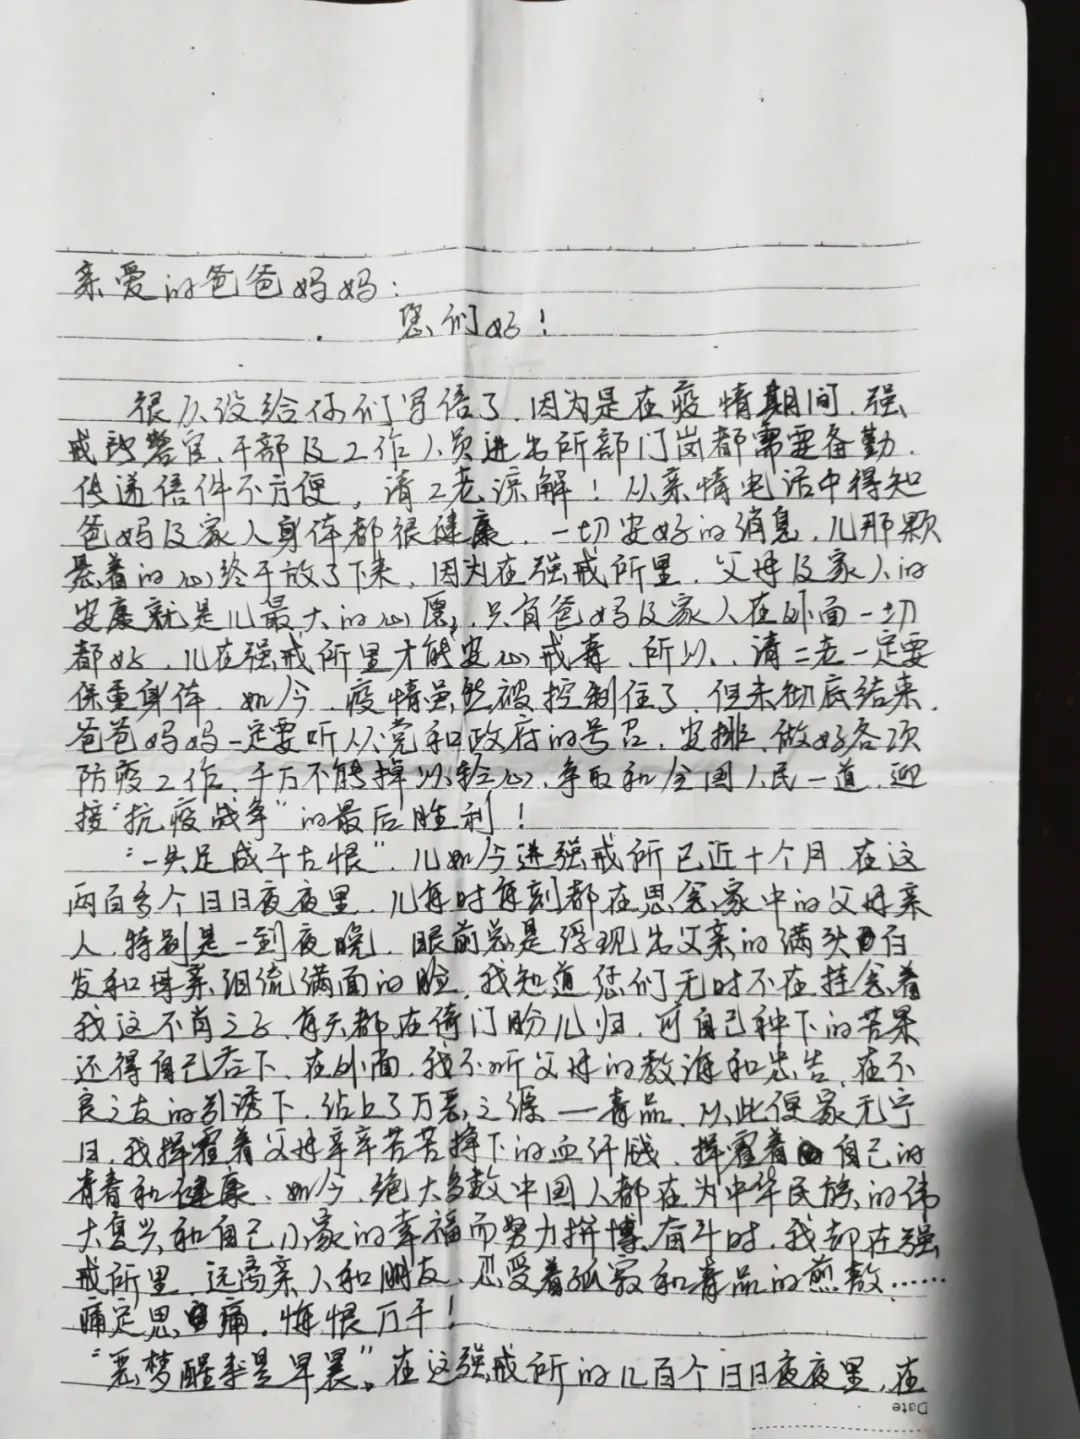 亲爱的爸爸妈妈：
您们好！
很久没给你们写信了，因为是在疫情期间，强
戒所警官、干部及工作人员进出所部门岗都需要备勤，
传递信件不方便，请二老谅解！从亲情电话中得知
爸妈及家人身体都很健康，一切安好的消息，儿那颗
悬着的心终于放了下来，因为在强戒所里，父母及家人的
安康就是儿最大的心愿，只有爸妈及家人在外面一切
都好，儿在强戒所里才能安心戒毒，所以，请二老一定要
保重身体，如今，疫情虽然被控制住了，但未彻底结束，
爸爸妈妈一定要听从党和政府的号召，安排，做好各项
防疫工作，千万不能掉以轻心，争取和全国人民一道，迎
接“抗疫战争”的最后胜利！
“一失足成千古恨”，儿如今进强戒所已近十个月，在这
两百多个日日夜夜里，儿每时每刻都在思念家中的父母亲
人，特别是一到夜晚，眼前总是浮现出父亲的满头白
发和母亲泪流满面的脸，我知道您们无时不在挂念着
我这不肖之子，每天都在倚门盼儿归，可自己种下的苦果
还得自己吞下，在外面，我不听父母的教诲和忠告，在不
良之友的引诱下，沾上了万恶之源—毒品，从此便家无宁
日，我挥霍着父母辛辛苦苦挣下的血汗钱，挥霍着自己的
青春和健康，如今，绝大多数中国人都在为中华民族的伟
大复兴和自己小家的幸福而努力拼搏、奋斗时，我却在强
戒所里，远离亲人和朋友，忍受着孤寂和毒品的煎熬……
痛定思痛，悔恨万千！
“恶梦醒来是早晨”，在这强戒所的几百个日日夜夜里，在
Date